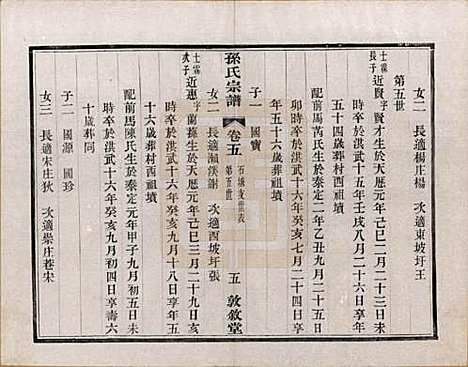 女二 長適楊庄楊 次適東坡圩王
第五世
士霖長子 近賢 字賢才生於天厯元年己巳二月二十三日未
時卒於洪武十五年壬戌八月二十六日享年
五十四歲葬村西祖墳
配前馬芮氏生於泰定二年乙丑九月二十五日
卯時卒於洪武十六年癸亥七月二十六日享
年五十六歲葬村西祖墳
子一 國寶
孫氏宗譜 卷五 石城支世表 第五世 五 敦敘堂
女二 長適瀨溪謝 次適西圩張
士霖次子 近惠 字蘭孫生於天厯元年己巳三月二十九日亥
時卒於洪武十六年癸亥九月十八日享年五
十六歲葬村西祖墳
配前馬陳氏生於泰定元年甲子九月初五日未
時卒於洪武十六年癸亥九月初四日享壽六
十歲葬同
子二 國源 國珍
女三 長適宋庄狄 次適崇庄巷宋